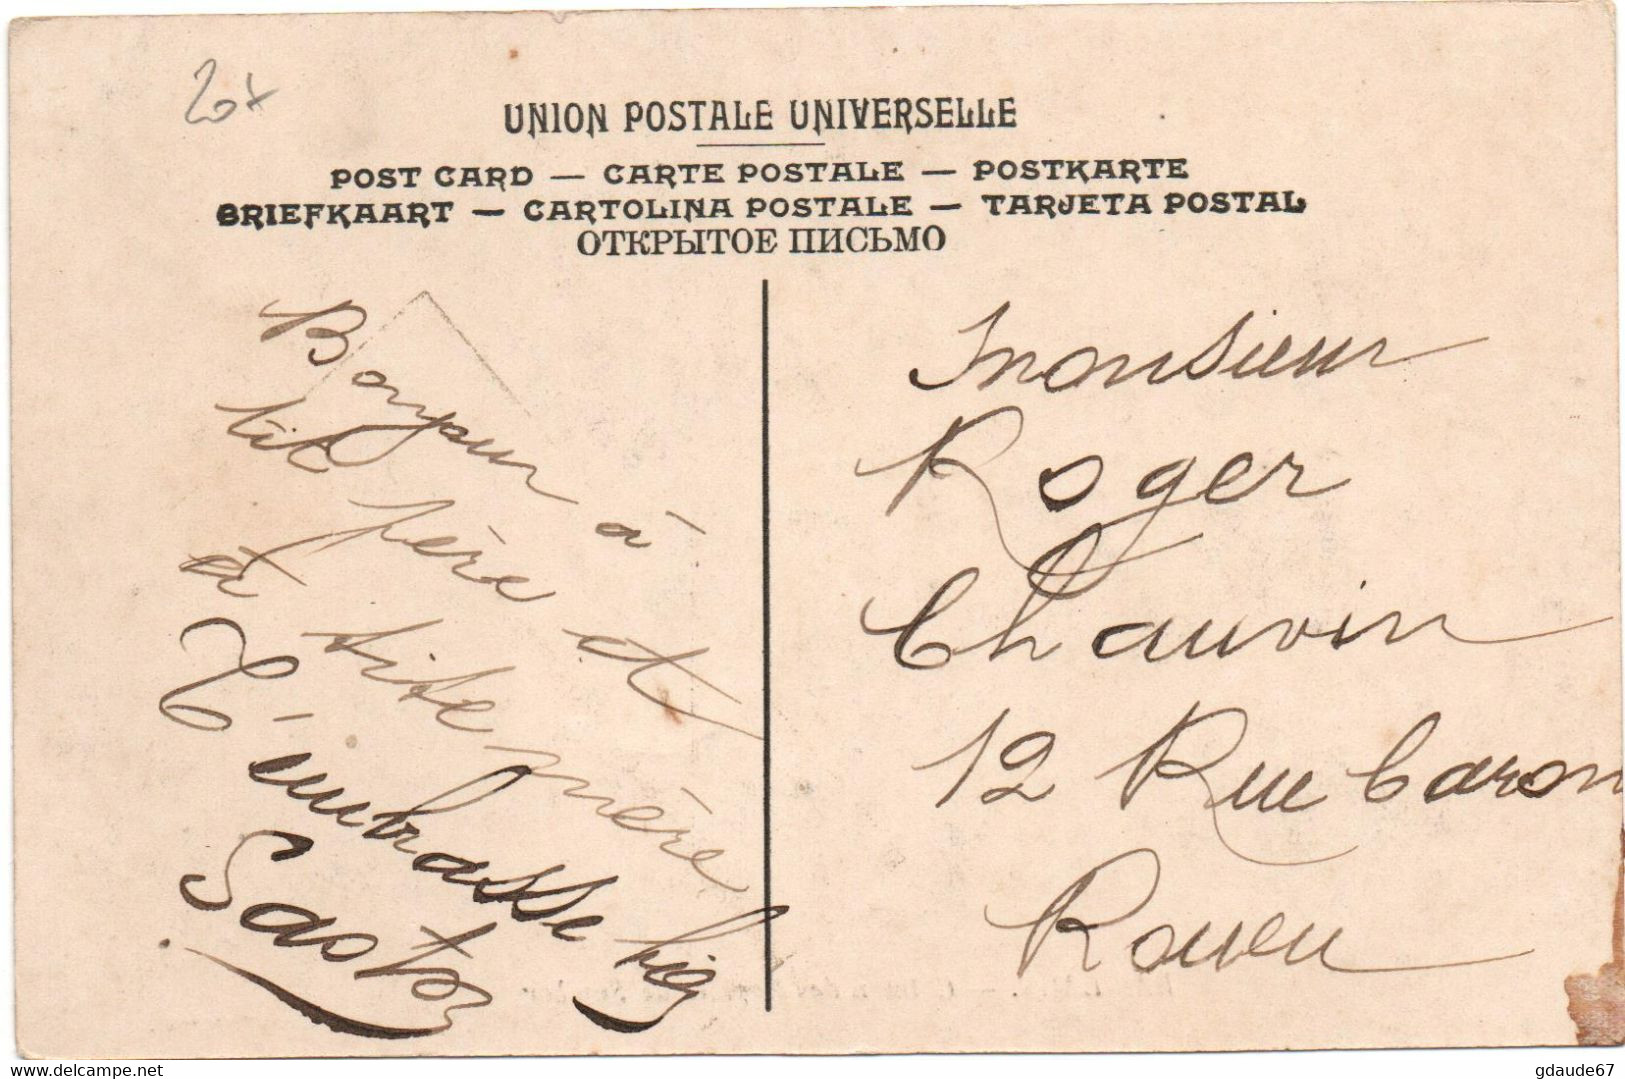 20x
UNION POSTALE UNIVERSELLE
POST CARD — CARTE POSTALE — POSTKARTE
BRIEFKAART — CARTOLINA POSTALE — TARJETA POSTAL
ОТКРЫТОЕ ПИСЬМО
Bonjour à
tit père et
à tite mère
T'embrasse bien
Gaston
Monsieur
Roger
Chauvin
12 Rue Caron
Rouen
www.delcampe.net
gdaude67